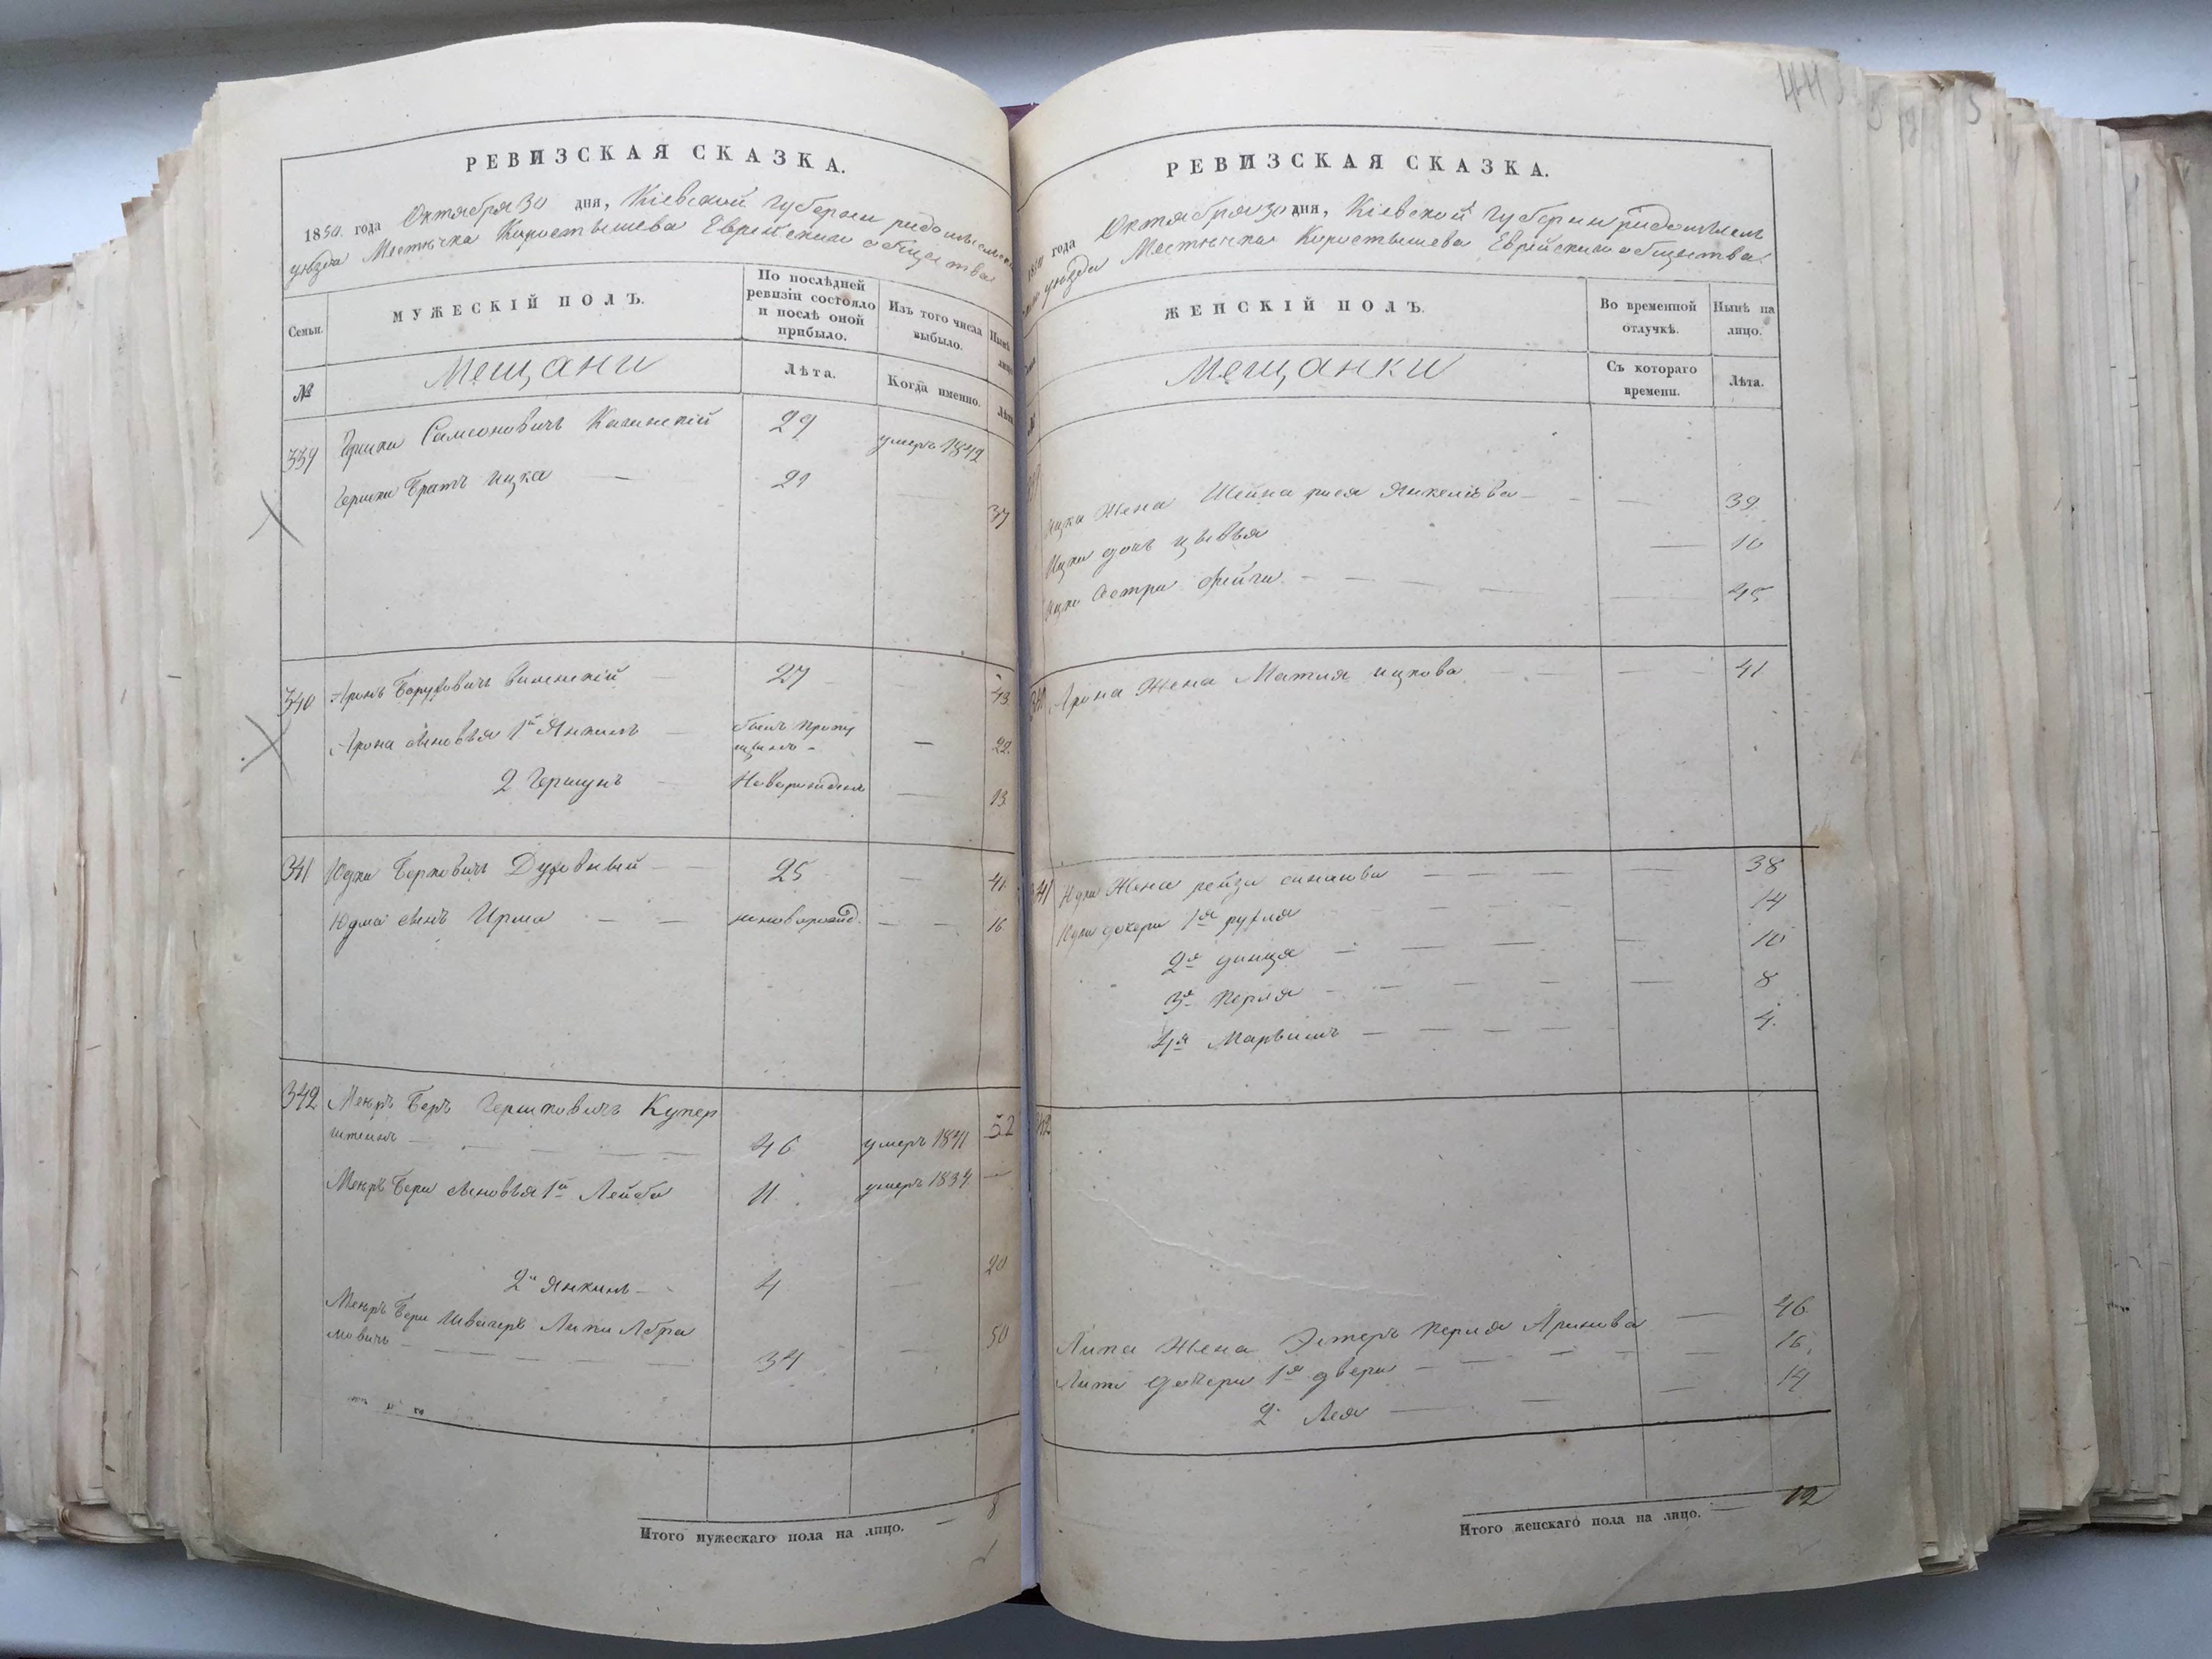 441
РЕВИЗСКАЯ СКАЗКА.
1850 года Октября 30 дня, Кіевской Губерніи
уѣзда Местечка Коростышева Еврейскаго общества
Семьи.
МУЖЕСКІЙ ПОЛЪ.
По послѣдней ревизіи состояло и послѣ оной прибыло.
Изъ того числа выбыло.
№
Мещани
Лѣта.
Когда именно.
339 Самсоновичъ 29 умеръ 1842
Гершки Братъ Ицка — 21 37
340 Аронъ Баруховичъ 27 43
Арона сыновья 1й Янкель был пропу
щенъ — 22
2 Гершунъ Новорожден — 13
341 Юдка Берковичъ Духовный — 25 — 41
Юдки сынъ — — новорожд. — — 16
342 Беръ Гершковичъ Купер
штейнъ — 46 умеръ 1841 52
Бера сыновья 1й Лейба 11 умеръ 1834 —
2й Янкель — 4 — 20
Бера Швагеръ Липа Абра
мовичъ — 34 — 50
Итого мужескаго пола на лицо. — 8
РЕВИЗСКАЯ СКАЗКА.
года Октября 30 дня, Кіевской Губерніи
уѣзда Местечка Коростышева Еврейскаго общества
ЖЕНСКІЙ ПОЛЪ.
Во временной отлучкѣ.
Нынѣ на лицо.
Мещанки
Съ котораго времени.
Лѣта.
Ицка Жена Шейна Янкелева — — 39
Ицки дочь Цывья — 10
Ицки Сестра Фейга — — 45
340 Арона Жена Ицкова — 41
341 Юдки Жена рейза — 38
Юдки дочери 1я рухля 14
2я — — 10
3я Перля — — 8
4я — — 4
342
Липа Жена Эстеръ Перля — 46
Липи дочери 1я двера — — 16
2 Лея — — 14
Итого женскаго пола на лицо. — 12